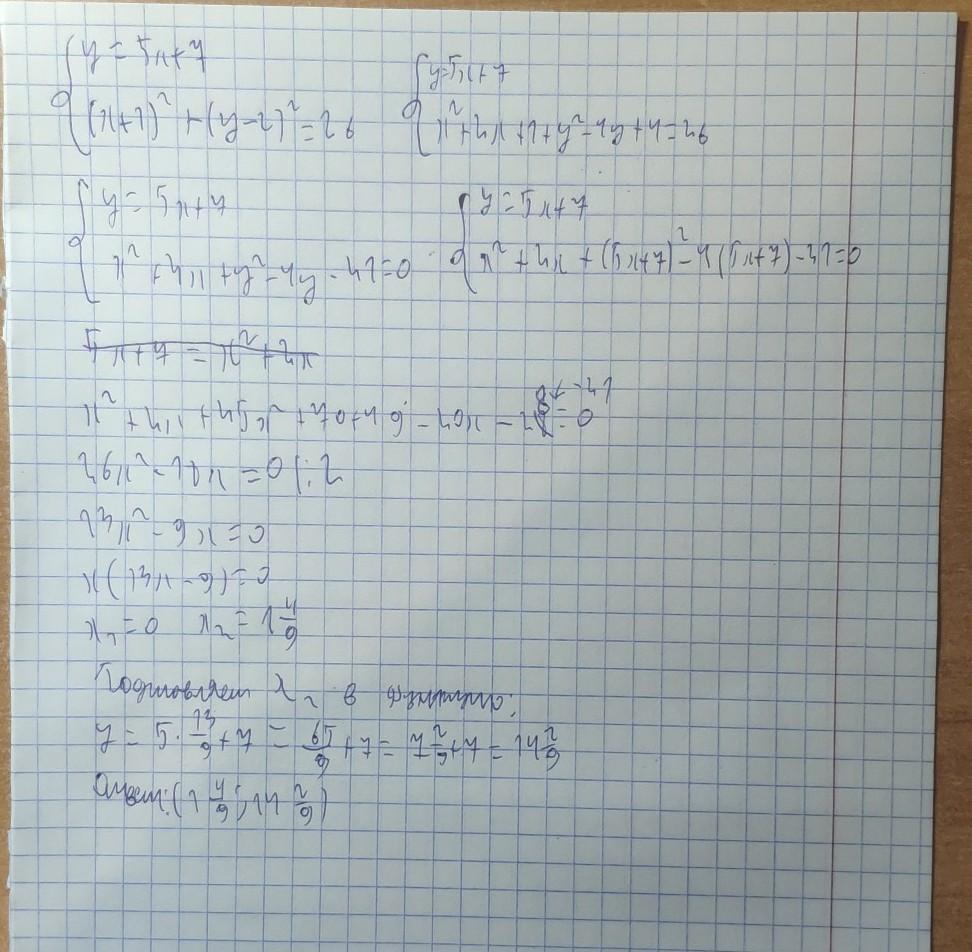 y = 5x+7
(x+2)² + (y-2)² = 29
y=5x+7
x²+4x+4+y²-4y+4=29
y = 5x+7
x² + 4x + y² - 4y - 21=0
y = 5x+7
x² + 4x + (5x+7)² - 4(5x+7) - 21=0
x² + 4x + 25x² + 70x + 49 - 20x - 28 - 21 = 0
26x² - 18x = 0 |:2
13x² - 9x = 0
x(13x - 9)=0
x₁ = 0 x₂ = 1 4/9
Подставляем x₂ в
y = 5 · 13/9 + 7 = 65/9 + 7 = 7 2/9 + 7 = 14 2/9
Ответ: (1 4/9; 14 2/9)